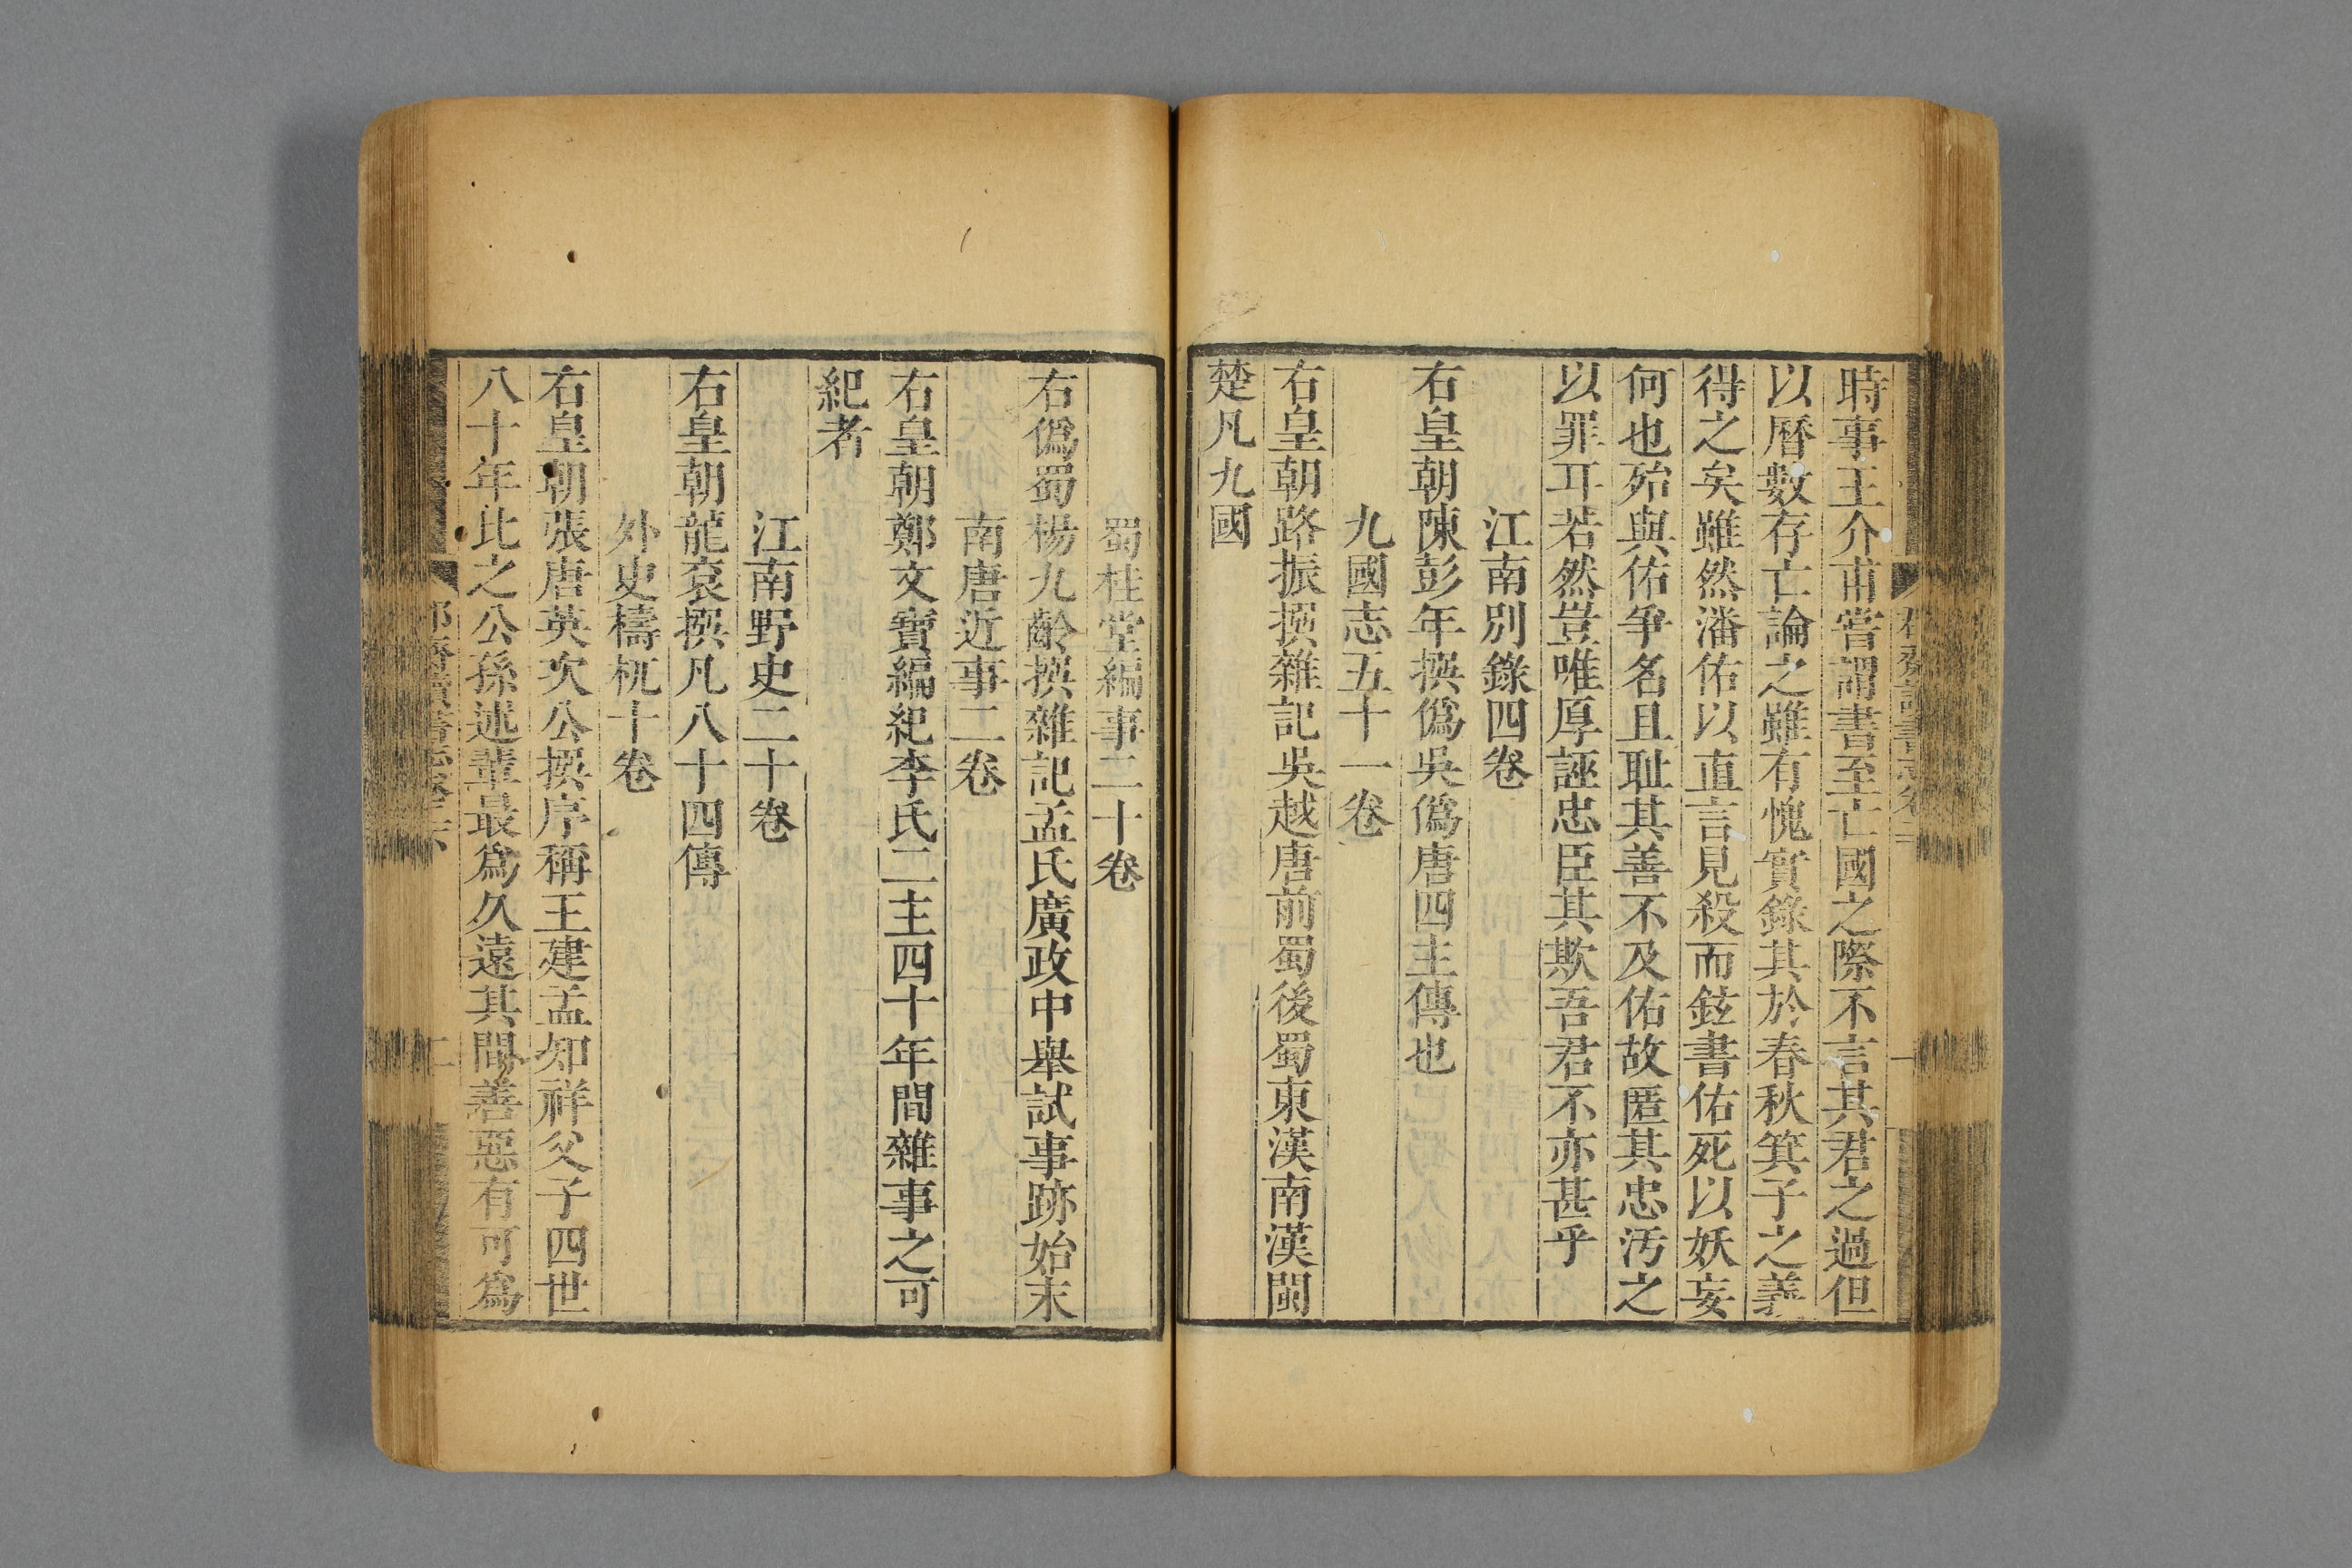 時事王介甫嘗謂書至亡國之際不言其君之過但
以曆數存亡論之雖有愧實錄其於春秋箕子之義
得之矣雖然潘佑以直言見殺而鉉書佑死以妖妄
何也殆與佑爭名且耻其善不及佑故匿其忠汚之
以罪耳若然豈唯厚誣忠臣其欺吾君不亦甚乎
江南別錄四卷
右皇朝陳彭年撰僞吳僞唐四主傳也
九國志五十一卷
右皇朝路振撰雜記吳越唐前蜀後蜀東漢南漢閩
楚凡九國
蜀桂堂編事二十卷
右僞蜀楊九齡撰雜記孟氏廣政中舉試事跡始末
南唐近事二卷
右皇朝鄭文寶編紀李氏二主四十年間雜事之可
紀者
江南野史二十卷
右皇朝龍袞撰凡八十四傳
外史檮杌十卷
右皇朝張唐英次公撰序稱王建孟知祥父子四世
八十年比之公孫述輩最爲久遠其間善惡有可爲
二